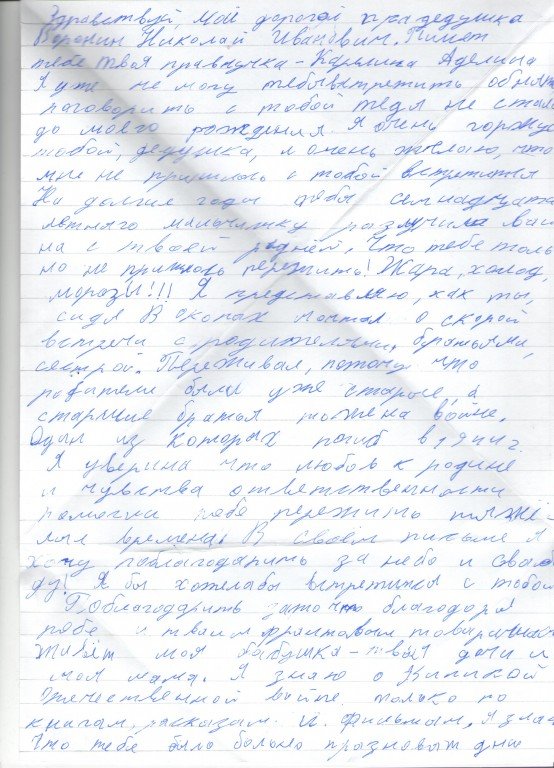 Здравствуй, мой дорогой прадедушка
Воронин Николай Иванович. Пишет
тебе твоя правнучка - Карылина Аделина
Я уже не могу тебя встретить обнять
поговорить с тобой тебя не стало
до моего рождения. Я очень горжус
тобой, дедушка, и очень жилаю, что
мне не пришлось с тобой встретится
На долгие годы тебя семнадцати
летнего мальчишку разлучила вай
на с твоей роднёй. Что тебе толь
ко не пришлось пережить! Жара, холод,
морозы!!! Я представляю, как ты,
сидя В окопах мечтал о скорой
встречи с родителями, братьями,
сестрой. Переживал, потому что
радители были уже старые, а
старшие братья тоже на войне.
Один из которых погиб в 1941 г.
Я уверина что любов к родине
и чувства ответственности
помогли тебе пережить тяжё-
лые времена. В своём письме я
хочу поблагодарить за небо и свабо
ду! Я бы хотелабы встретится с тобой
Поблагодарить зато что благодоря
тебе и твоим фронтовым товарищам
Живёт моя бабушка - твоя дочь и
моя мама. Я знаю о Виликой
Отечественной войне только по
книгам, расказам и фильмам, я знаю
Что тебе было больно празновать день